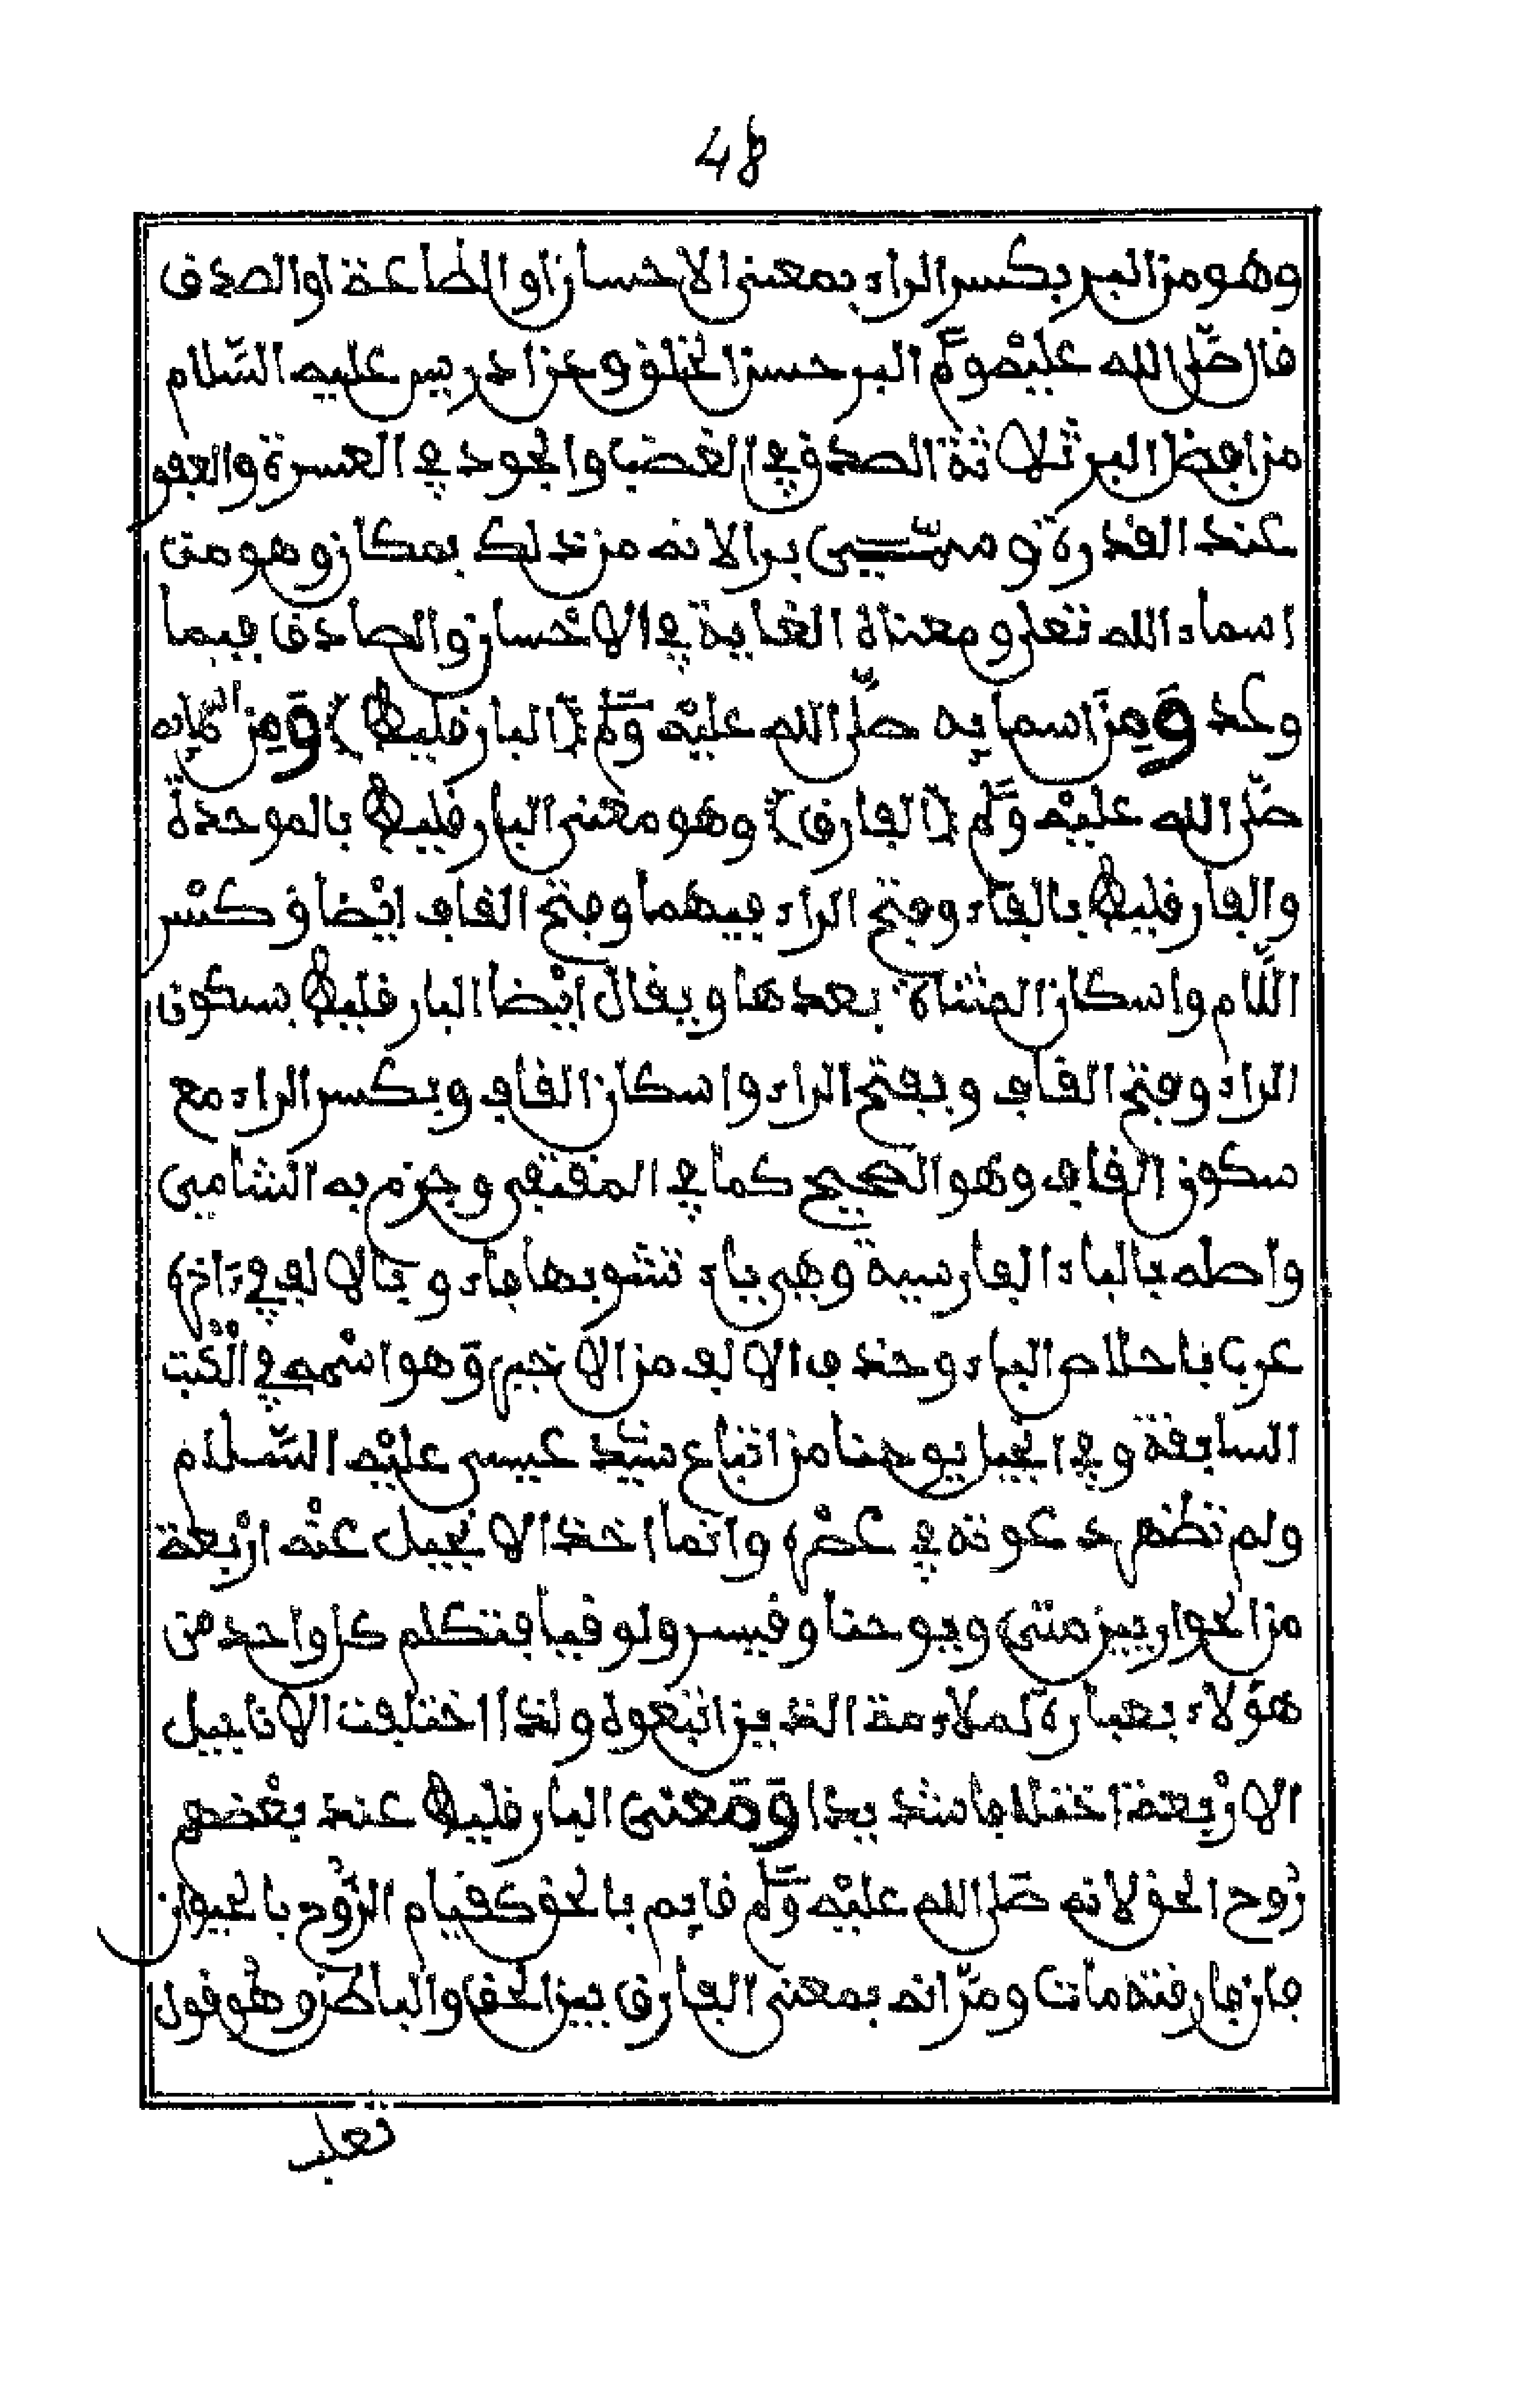 48
وهو من البر بكسر الراء بمعنى الاحسان او الطاعة او الصدق
قال صلى الله عليه وسلم البر حسن الخلق وعن ادريس عليه السّلام
من افضل البر ثلاثة الصدق في الغضب والجود في العسرة والعفو
عند القدرة و سمي برا لانه من ذلك بمكان وهو من
اسماء الله تعلى ومعناه الغاية في الاحسان والصادق فيما
وعد وَمِن اسمايه صلّى الله عليه وسلم (البارقليط) وَمِن اسمايه
صلّى الله عليه وسلم (الفارق) وهو معنى البارقليط بالموحدة
والفارقليط بالفاء وفتح الراء فيهما وفتح القاف ايْضا وكسْر
اللّام واسكان المثناة بعدها ويقال ايْضا البارقليط بسكون
الراء وفتح القاف وبفتح الراء واسكان القاف وبكسر الراء مع
سكون القاف وهو الصحيح كما في المقتفى وجزم به الشامي
واصله بالباء الفارسية وهي باء تشوبها فاء وبالالف في ءاخره
عرب باخلاص الباء وحذف الالف من الاخير وَهو اسْمه في الْكتب
السابقة وفي انجيل يوحنا من اتباع سيّد عيسى عليْه السّلام
ولم تظهر دعوته في عصْره وانما اخذ الانجيل عنْه ارْبعة
من الحواريين متى ويوحنا وقيسر ولوقيا فتكلم كل واحد من
هؤلاء بعبارة لملاءمة الذين اتبعوه ولذا اختلفت الاناجيل
الارْبعة اختلافا شديدا وَمَعنى البارقليط عند بعْضهم
رُوح الحق لانه صلّى الله عليْه وسلم قايم بالحق كقيام الرُّوح بالحيوان
فان فارقته مات ومرّ انه بمعنى الفارق بين الحق والباطل وهُو قول
ثعلب